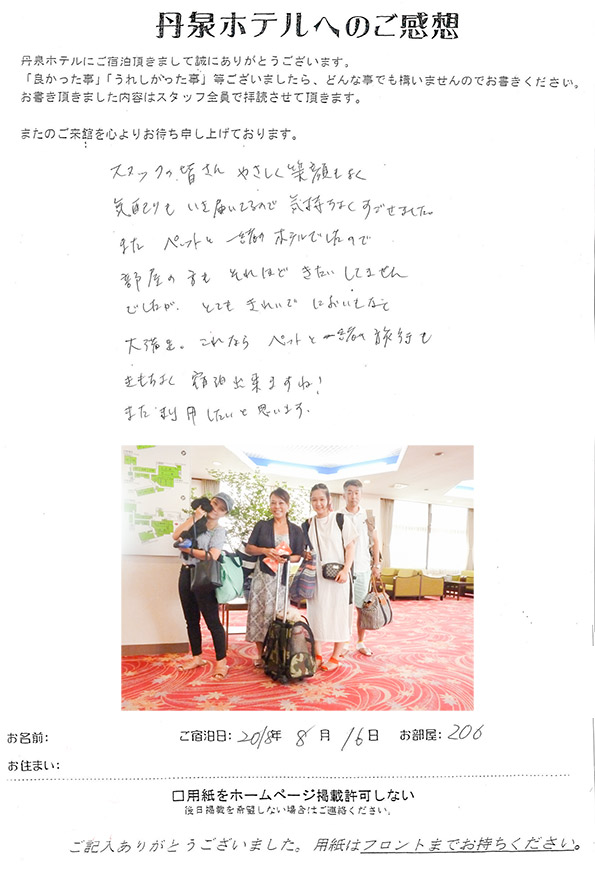 丹泉ホテルへのご感想
丹泉ホテルにご宿泊頂きまして誠にありがとうございます。
「良かった事」「うれしかった事」等ございましたら、どんな事でも構いませんのでお書きください。
お書き頂きました内容はスタッフ全員で拝読させて頂きます。
またのご来館を心よりお待ち申し上げております。
スタッフの皆さん やさしく笑顔もよく
気配りも いき届いてるので 気持ちよくすごせました。
また ペットと 一緒の ホテルでしたので
部屋の方も それほど きたいしてません
でしたが、とても きれいで においもなく
大満足。これなら ペットと一緒の旅行も
きもちよく 宿泊出来ますね!
また利用したいと思います。
お名前: ご宿泊日: 2018年 8月 16日 お部屋: 206
お住まい:
□用紙をホームページ掲載許可しない
後日掲載を希望しない場合はご連絡ください。
ご記入ありがとうございました。用紙はフロントまでお持ちください。